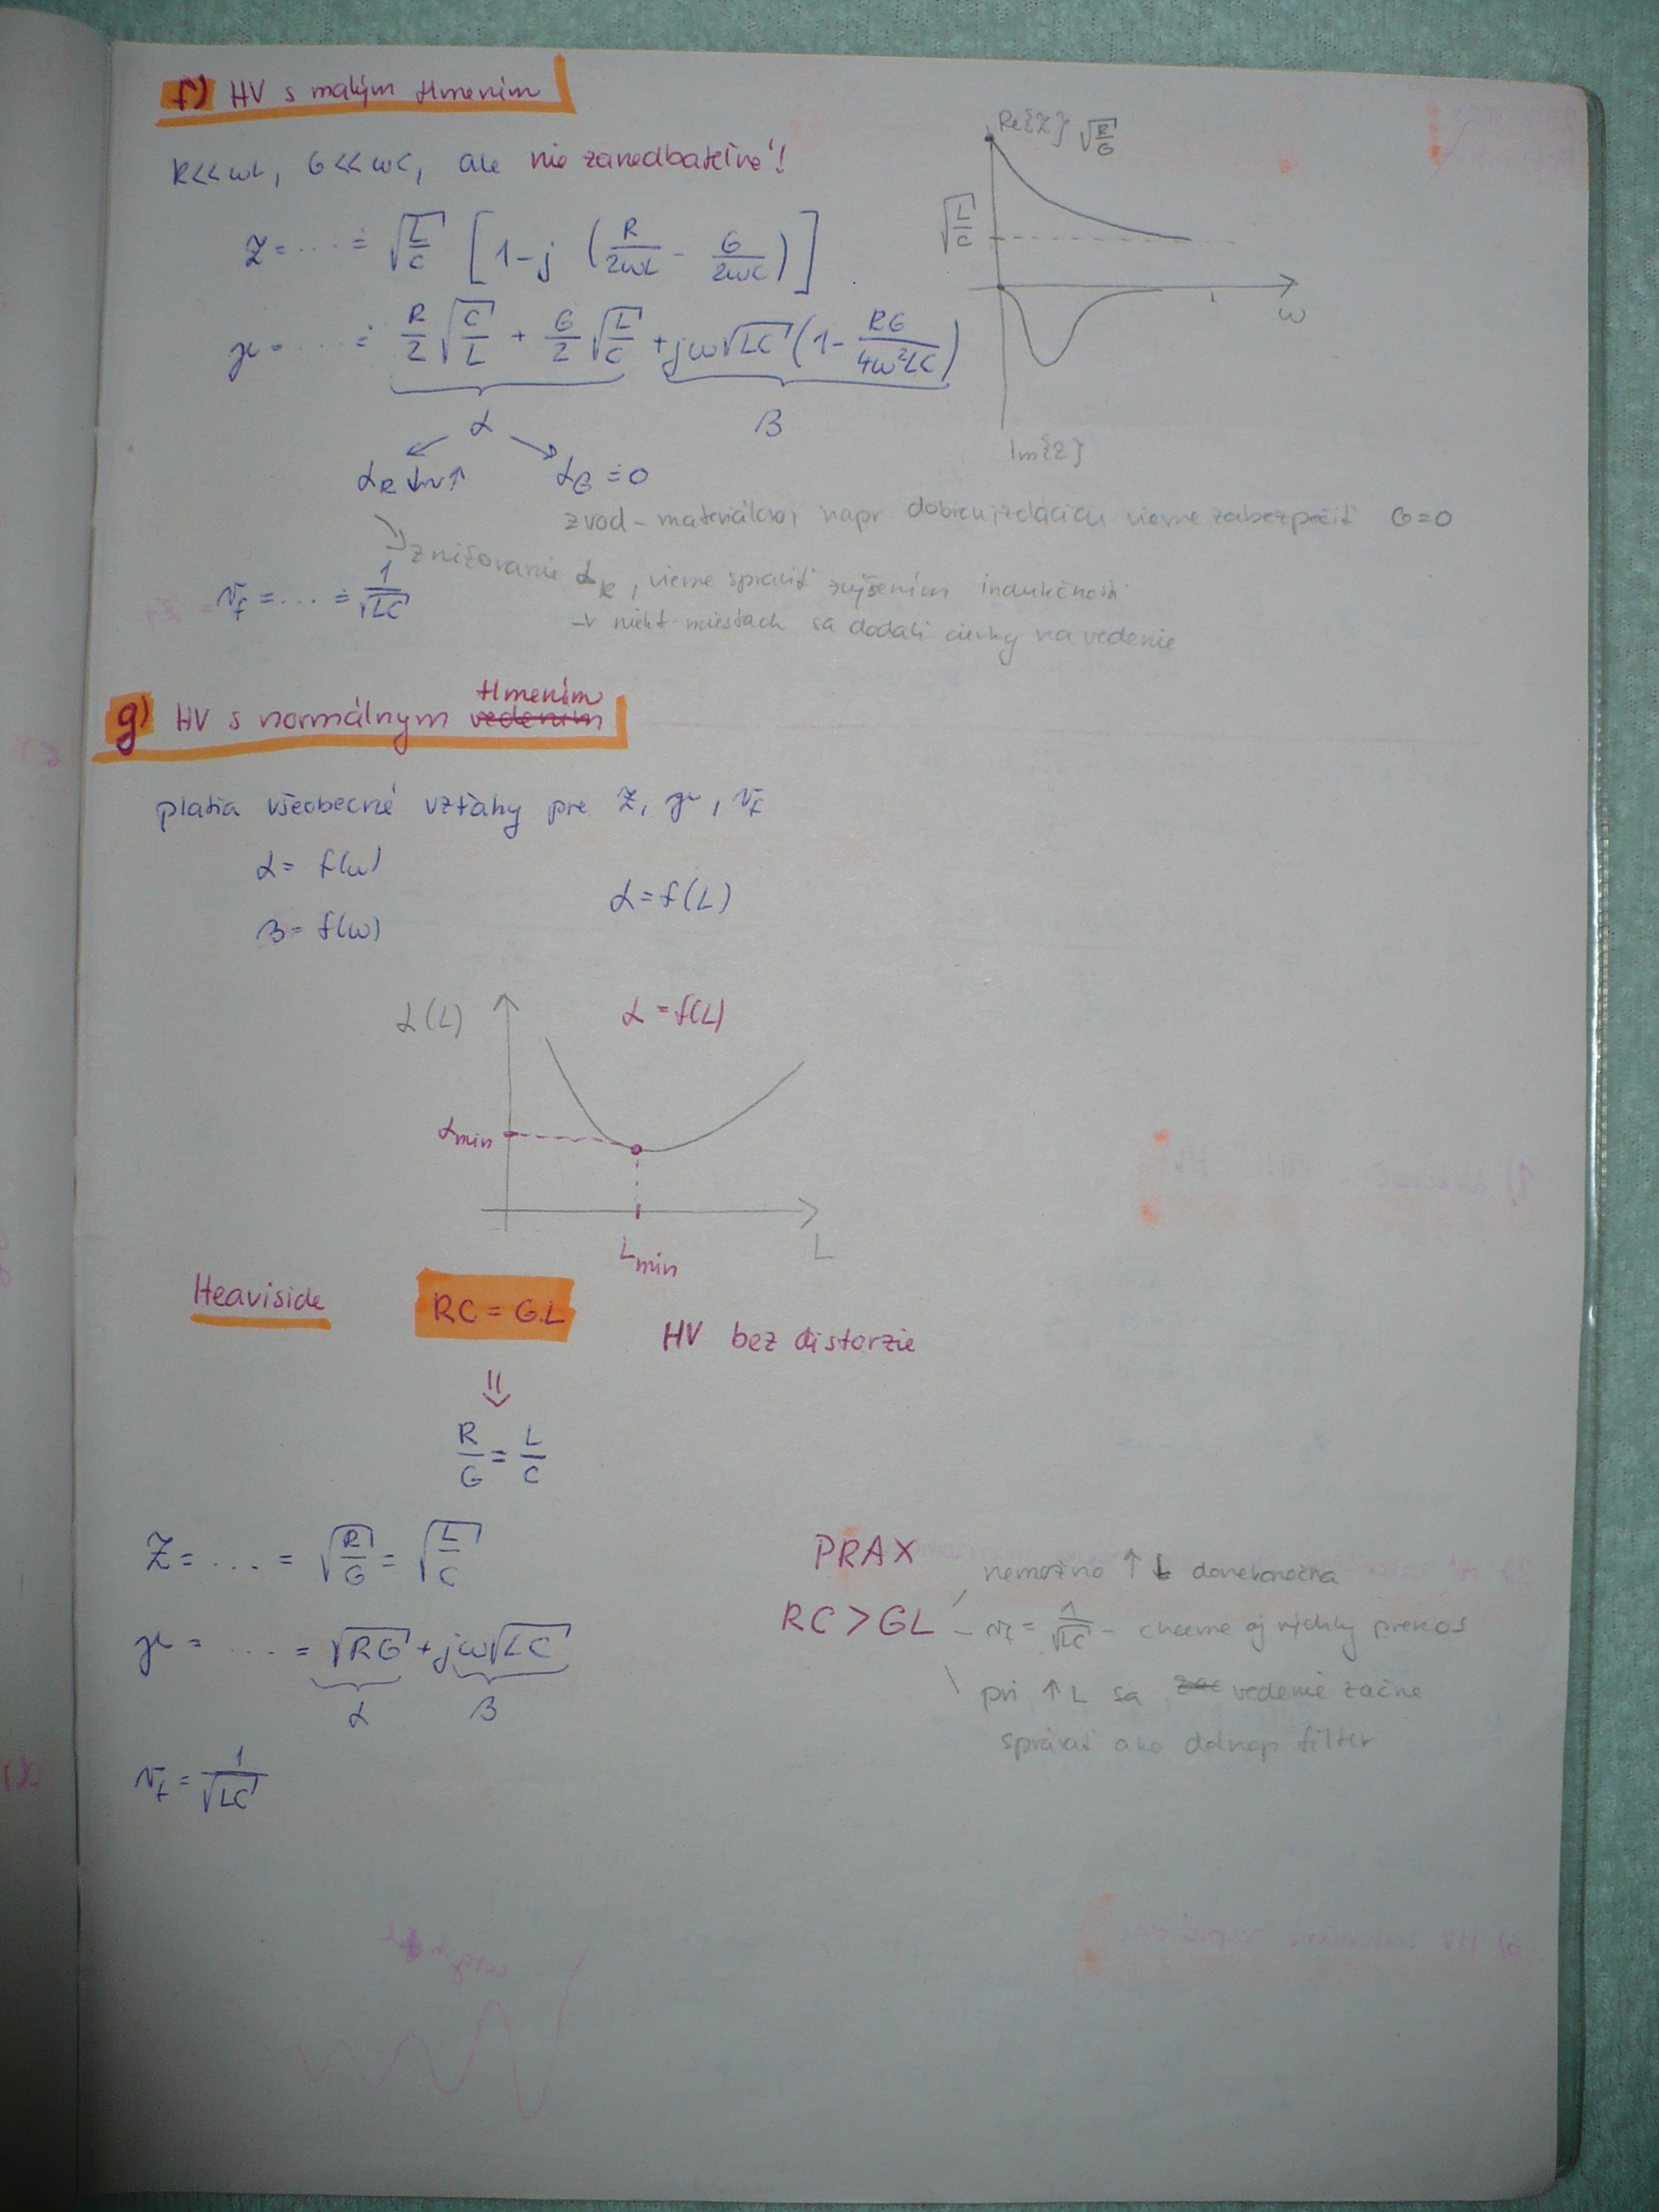 f) HV s malým tlmením
R<<ωL, G<<ωC, ale nie zanedbateľné!
Z = .... ≐ √(L/C) [1-j (R/2ωL - G/2ωC)]
γ = .... ≐ R/2 √(C/L) + G/2 √(L/C) + jω√LC (1- RG/4ω²LC)
α β
α_R ↓ L↑ α_G ≐ 0
zvod - materiálovo, napr dobrou izoláciou vieme zabezpečiť G=0
znižovanie α_R, vieme spraviť zvýšením indukčnosti
v_f = ... ≐ 1/√LC
- v niekt. miestach sa dodali cievky na vedenie
Re{Z} √(R/G)
√(L/C)
ω
Im{Z}
g) HV s normálnym vedením tlmením
platia všeobecné vzťahy pre Z, γ, v_f
α = f(ω)
α = f(L)
β = f(ω)
α(L) α = f(L)
α min
L min L
Heaviside RC = GL
HV bez distorzie
⇓
R/G = L/C
Z = .... = √(R/G) = √(L/C)
γ = .... = √RG + jω√LC
α β
v_f = 1/√LC
PRAX
nemožno ↑ L donekonečna
RC > GL - v_f = 1/√LC - chceme aj rýchly prenos
pri ↑ L sa vedenie začne
správať ako dolnop filter